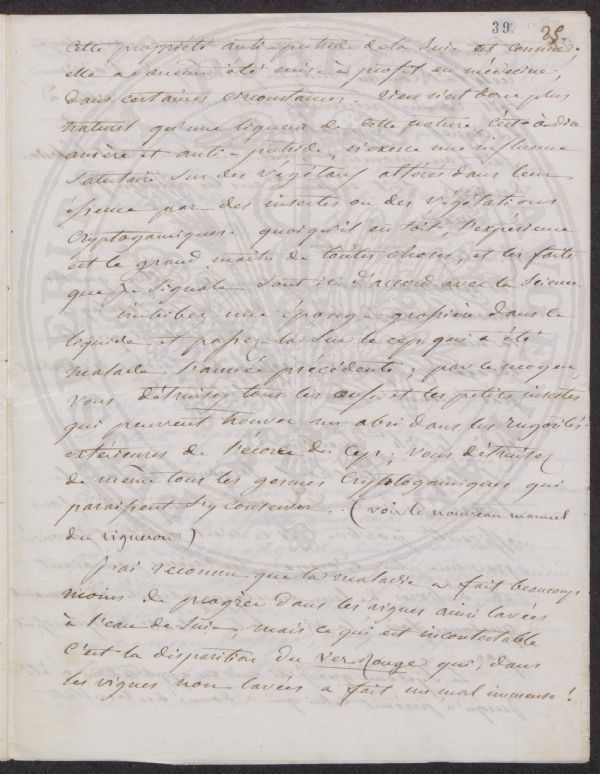 39. 28
cette propriété anti-putride de la Suie est connue.
elle a même été mise à profit en médecine,
dans certaines circonstances. rien n'est donc plus
naturel qu'une liqueur de cette nature c'est à dire
amère et anti-putride, n'exerce une influence
Salutaire sur des végétaux altérés dans leur
par des insectes ou des végétations
Cryptogamiques. quoiqu'il en soit, l'expérience
est le grand maître de toutes choses, et les faits
que je Signale sont ici d'accord avec la Science.
imbibez une éponge grossière dans le
liquide et passez-la sur le cep qui a été
malade l'année précédente; par ce moyen
vous détruisez tous les œufs et les petits insectes
qui peuvent trouver un abri dans les rugosités
extérieures de l'écorce du cep; vous détruisez
de même tous les germes Cryptogamiques qui
paraissent s'y conserver. (voir le nouveau manuel
du vigneron)
J'ai reconnu que la maladie a fait beaucoup
moins de progrès dans les vignes ainsi lavées
à l'eau de Suie, mais ce qui est incontestable
C'est la disparition du Ver Rouge qui, dans
les vignes non lavées a fait un mal immense!